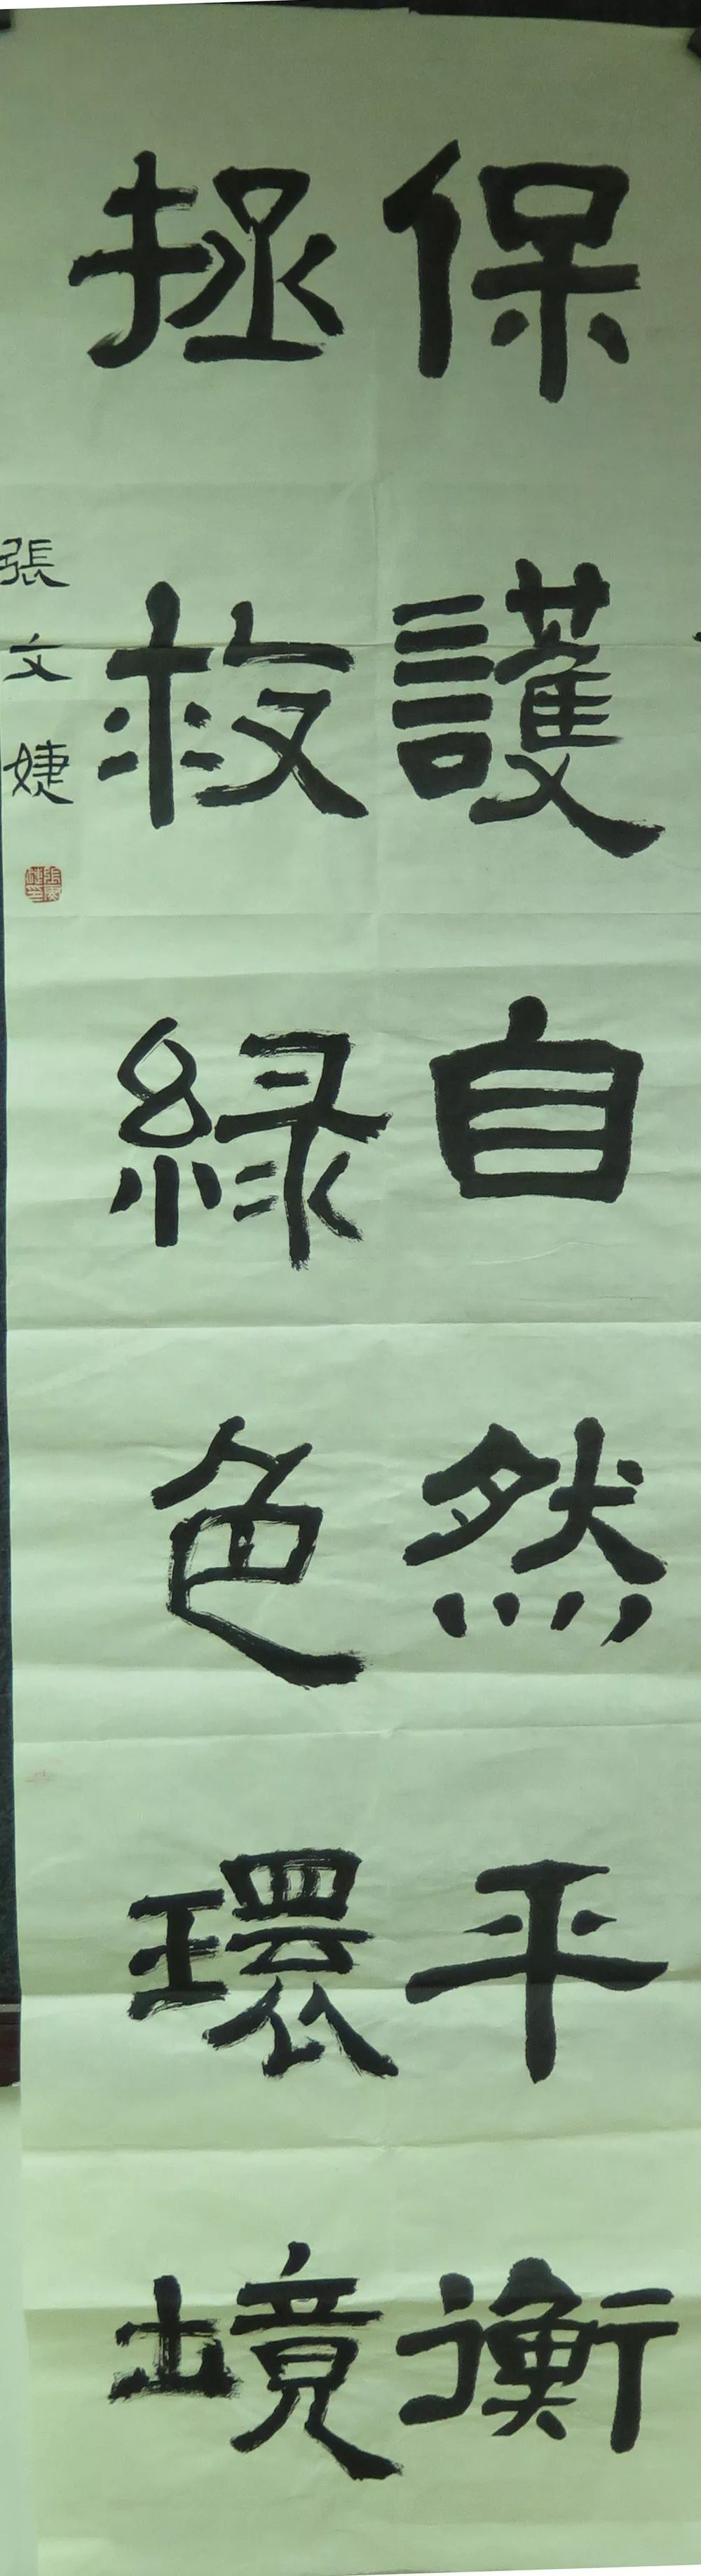 保護自然平衡
拯救緑色環境
張文婕